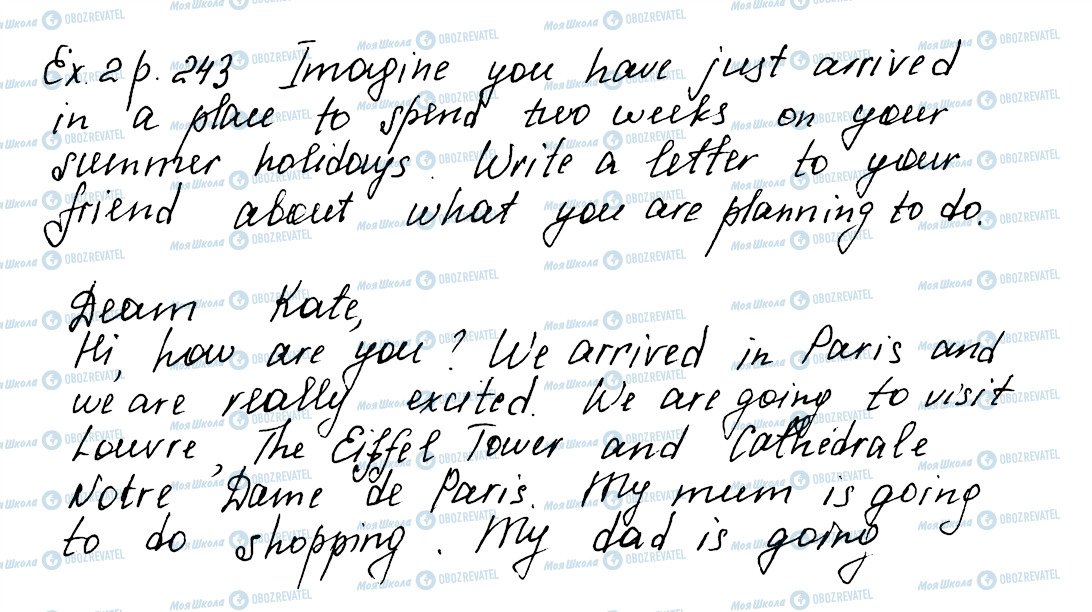 Ex. 2 p. 243 Imagine you have just arrived
in a place to spend two weeks on your
summer holidays. Write a letter to your
friend about what you are planning to do.
Deam Kate,
Hi, how are you? We arrived in Paris and
we are really excited. We are going to visit
Louvre, The Eiffel Tower and Cathédrale
Notre Dame de Paris. My mum is going
to do shopping. My dad is going
Моя Школа OBOZREVATEL